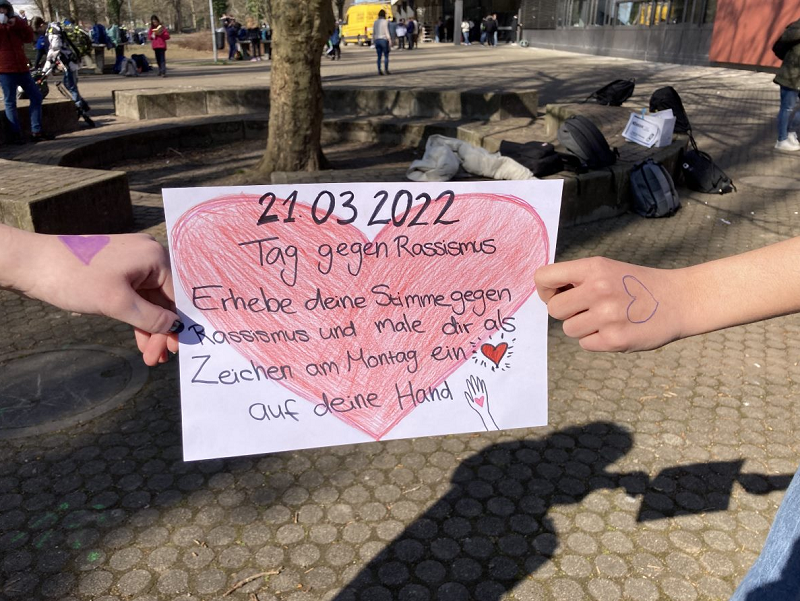 21.03 2022
Tag gegen Rassismus
Erhebe deine Stimme gegen
Rassismus und male dir als
Zeichen am Montag ein
auf deine Hand